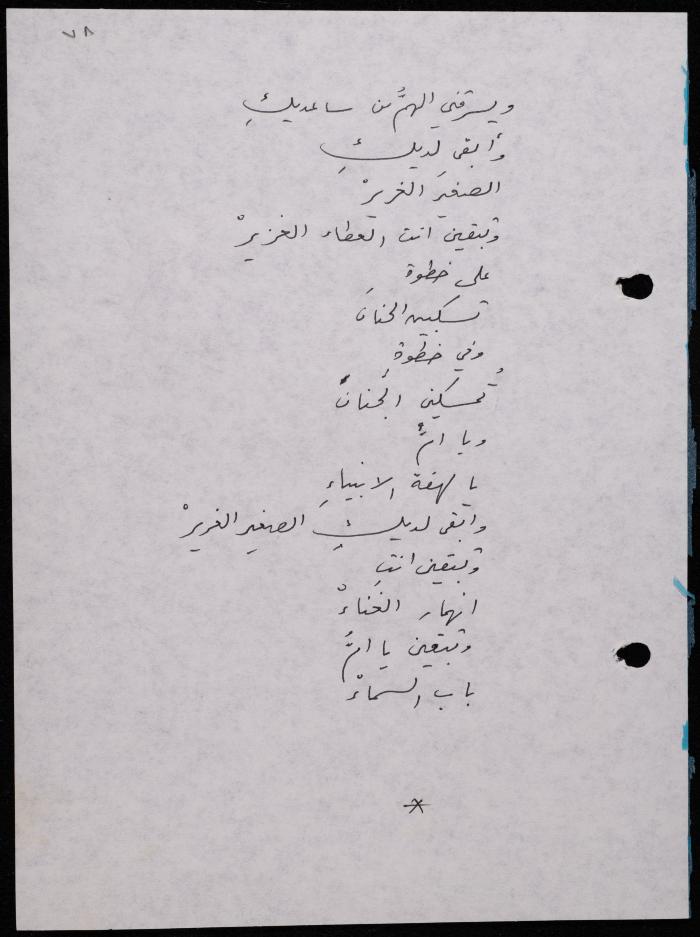 ٧٨
ويسرقني الهمُّ من ساعديكِ
وأبقى لديكِ
الصغيرَ الغريرْ
وتبقين انت العطاء الغزيرْ
على خطوة
تسكبين الحنانَ
وفي خطوةٍ
تُمسكين الجنانْ
ويا امُّ
يا لهفة الانبياءِ
وأبقى لديكِ الصغير الغريرْ
وتبقين انتِ
انهمار الغناءْ
وتبقين يا امُّ
باب السماءْ
*